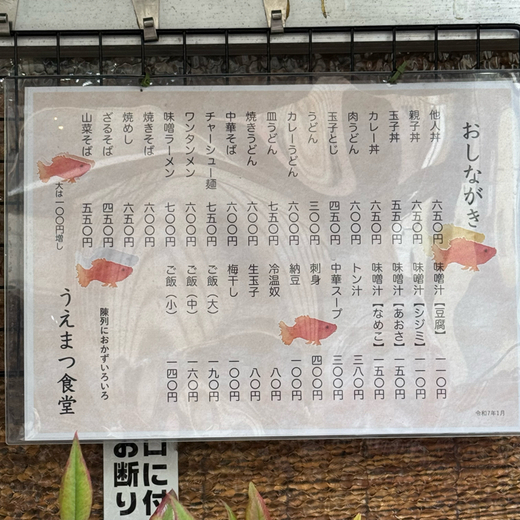 おしながき
他人丼 六五〇円
親子丼 六五〇円
玉子丼 五五〇円
カレー丼 六五〇円
肉うどん 六〇〇円
玉子とじ 四五〇円
うどん 三〇〇円
カレーうどん 六〇〇円
皿うどん 七五〇円
焼きうどん 六〇〇円
中華そば 六〇〇円
チャーシュー麺 七五〇円
ワンタンメン 六〇〇円
味噌ラーメン 七〇〇円
焼きそば 六〇〇円
焼めし 六五〇円
ざるそば 四五〇円
山菜そば 五五〇円
大は一〇〇円増し
味噌汁【豆腐】 一一〇円
味噌汁【シジミ】 一一〇円
味噌汁【あおさ】 一五〇円
味噌汁【なめこ】 一五〇円
トン汁 三八〇円
中華スープ 三〇〇円
刺身 四〇〇円
納豆 一〇〇円
冷温奴 八〇円
生玉子 八〇円
梅干し 一〇〇円
ご飯(大) 一九〇円
ご飯(中) 一六〇円
ご飯(小) 一四〇円
陳列におかずいろいろ
うえまつ食堂
令和7年1月
口に付
お断り